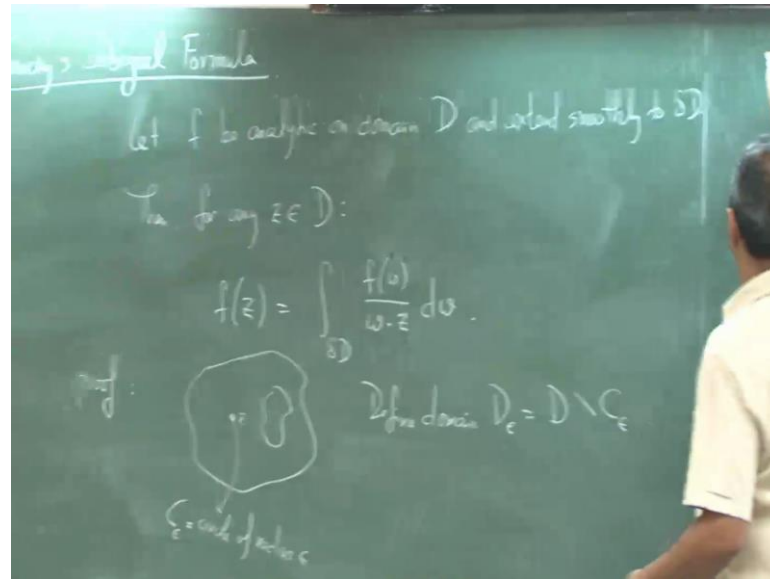 Integral Formula
Let f be analytic on domain D and extend smoothly to δD
Then for any z ∈ D:
f(z) = ∫_{δD} f(w)/(w-z) dw.
proof:
z
Define domain D_ε = D \ C_ε
C_ε = circle of radius ε